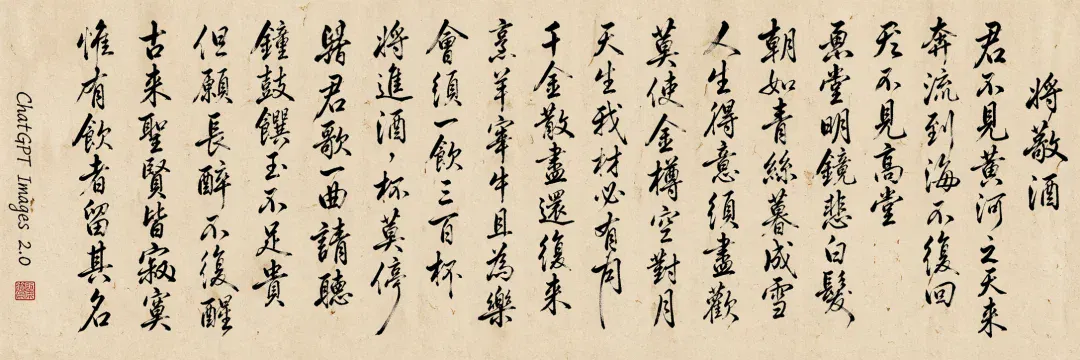 将敬酒
君不見黄河之天来
奔流到海不復回
不見高堂
悪堂明鏡悲白髮
朝如青絲暮成雪
人生得意須盡歡
莫使金樽空對月
天生我材必有用
千金散盡還復来
烹羊宰牛且為樂
會須一飲三百杯
將進酒，杯莫停
君歌一曲請聽
鐘鼓饌玉不足貴
但願長醉不復醒
古来聖賢皆寂寞
惟有飲者留其名
ChatGPT Images 2.0